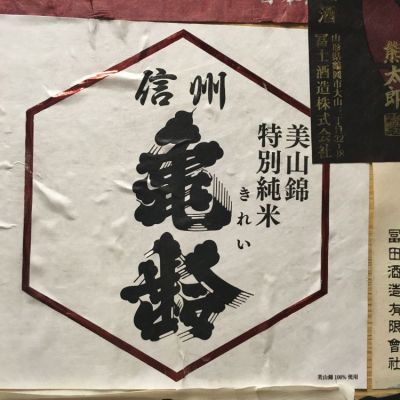 信州
亀齢
きれい
美山錦
特別純米
美山錦 100% 使用
酒
山形県鶴岡市大山三丁目32-48
冨士酒造株式会社
熊太郎
冨田酒造有限會社